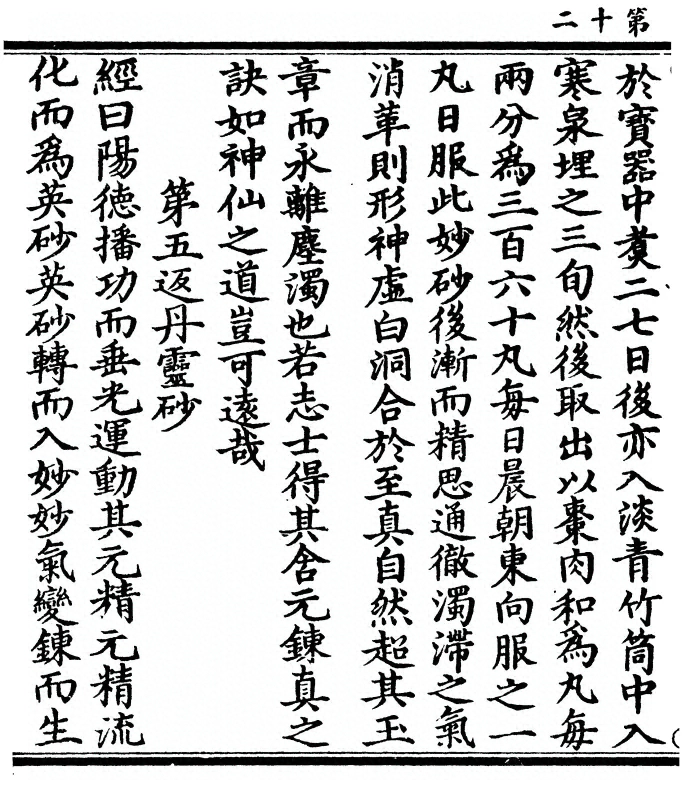 第十二
於寶器中煑二七日後亦入淡青竹筒中入
寒泉埋之三旬然後取出以棗肉和爲丸每
兩分爲三百六十丸每日晨朝東向服之一
丸日服此妙砂後漸而精思通徹濁滯之氣
消革則形神虛白洞合於至真自然超其玉
章而永離塵濁也若志士得其含元鍊真之
訣如神仙之道豈可遠哉
第五返丹靈砂
經曰陽德播功而垂光運動其元精元精流
化而爲英砂英砂轉而入妙妙氣變鍊而生